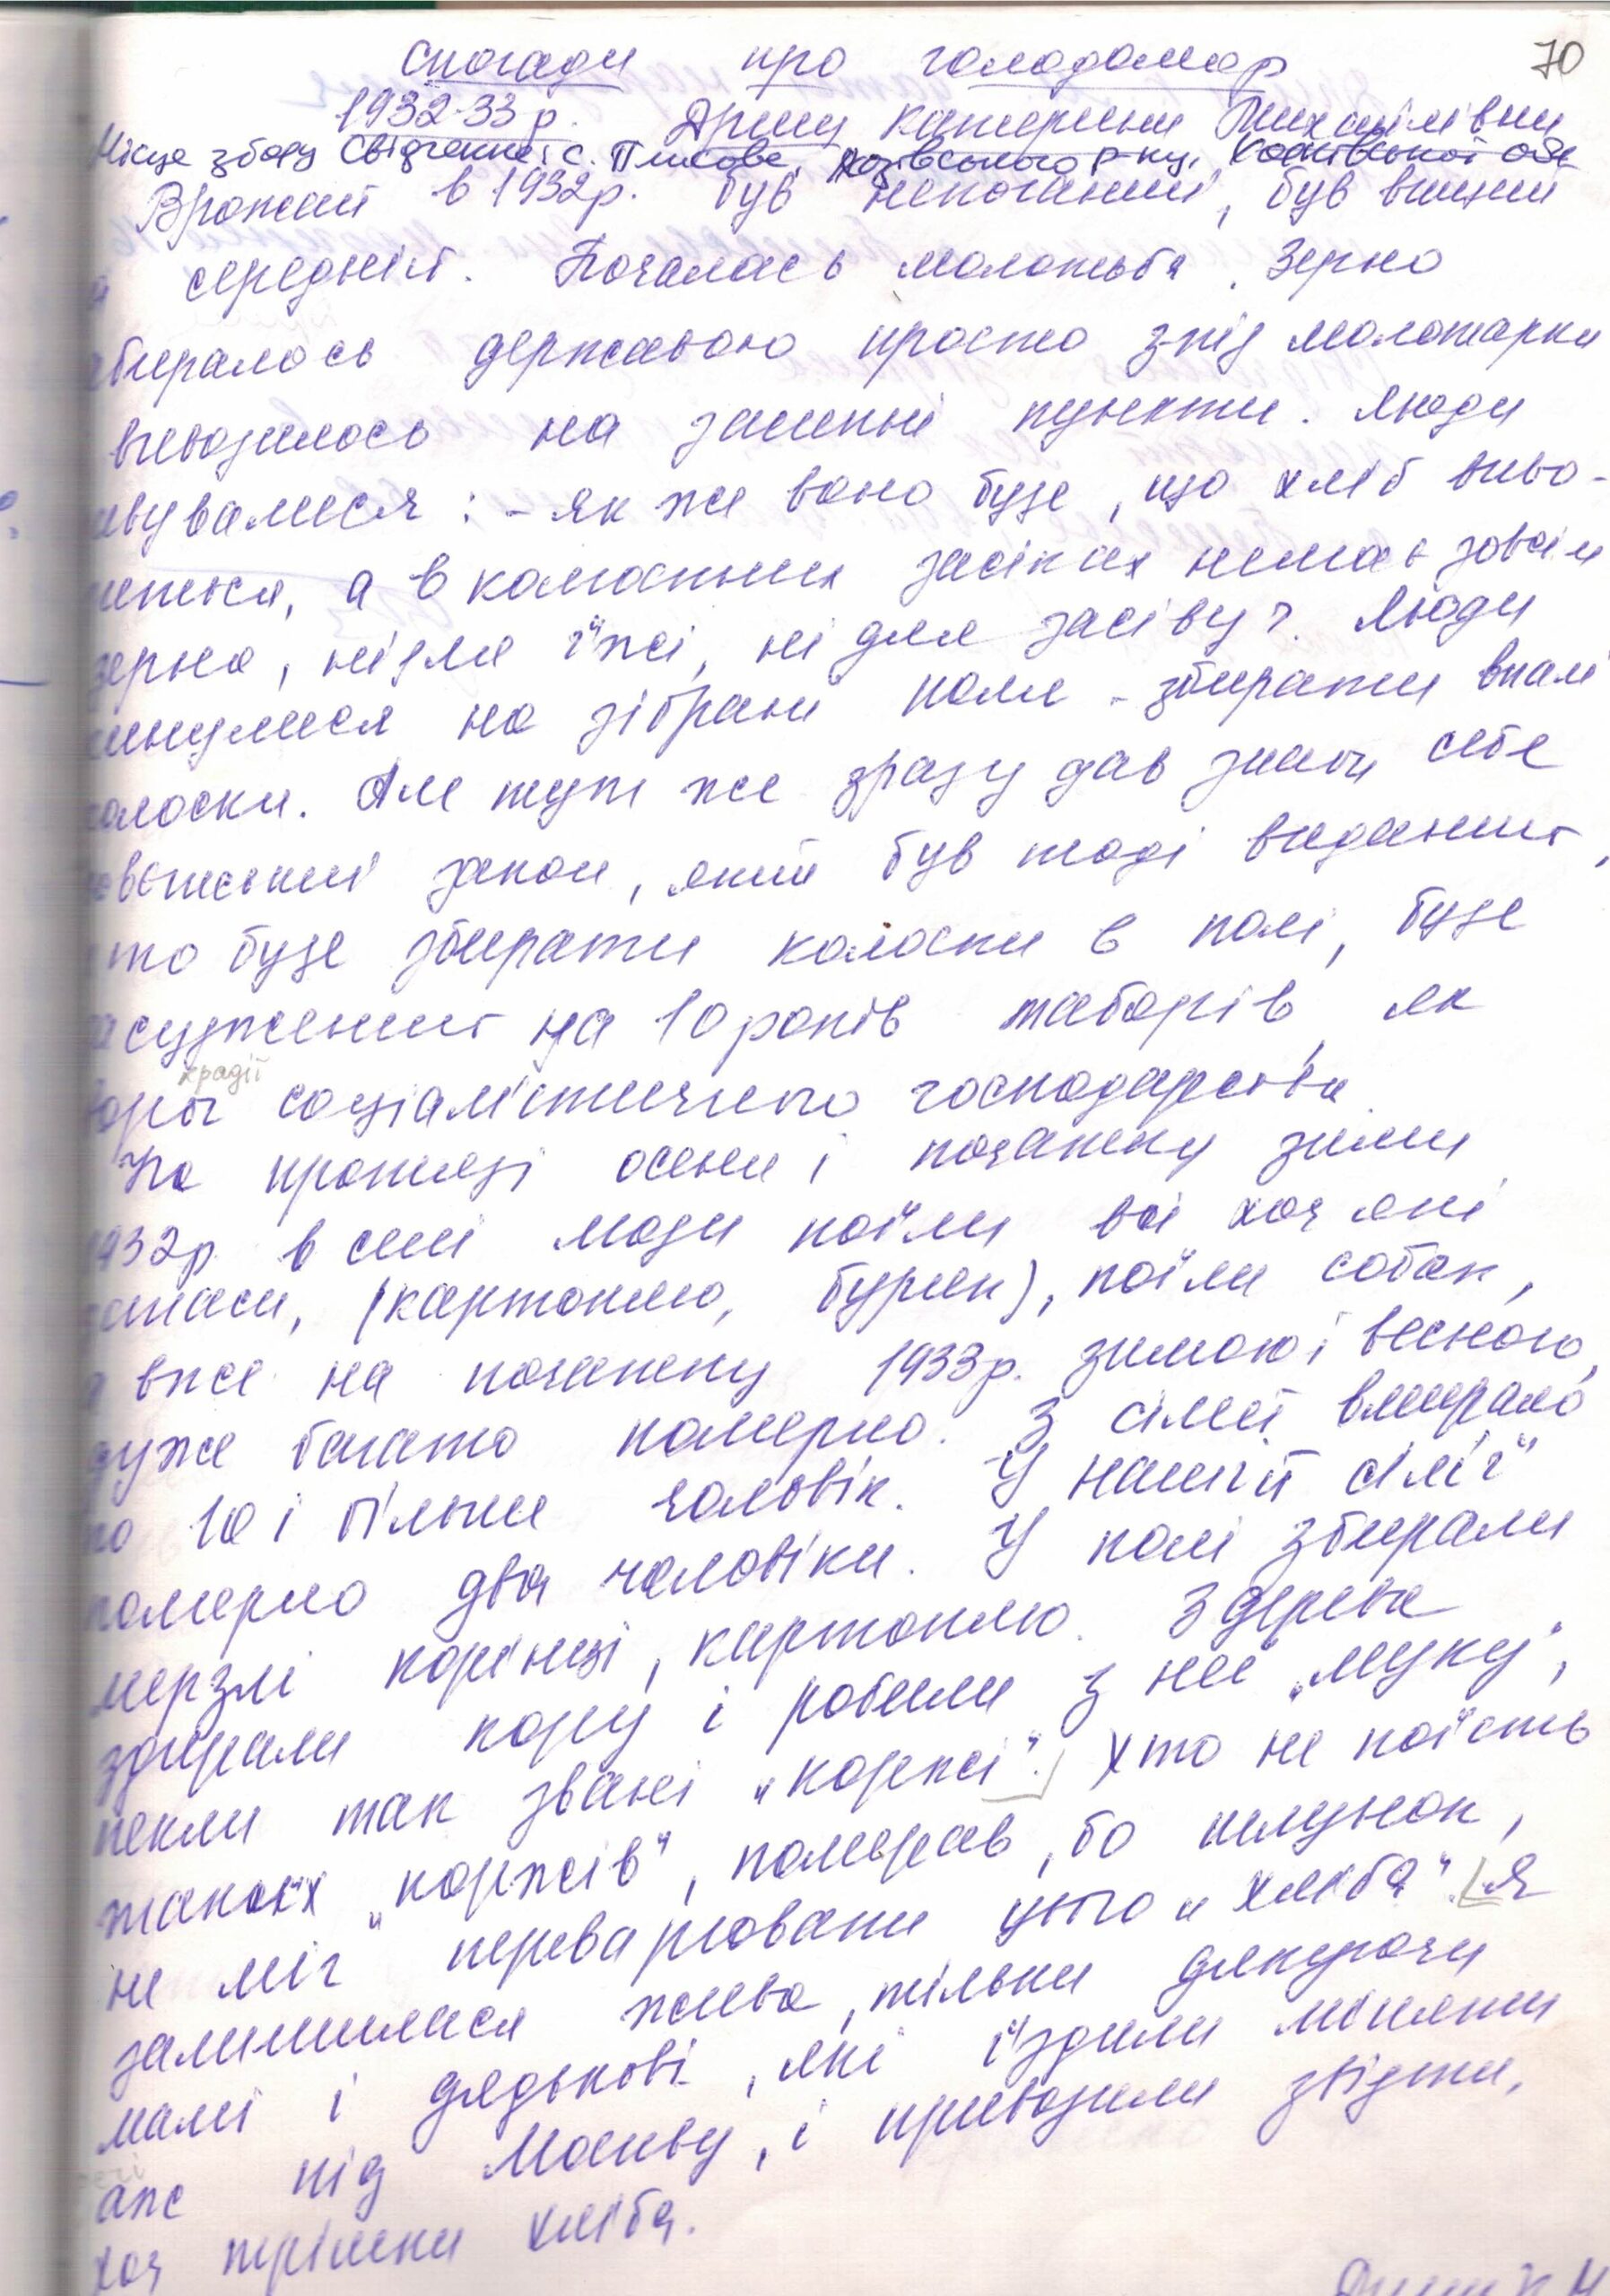 Спогади про голодомор 70
1932-33 р. Катерини Михайлівни
Місце збору свідчення: с. р-ну, обл
Врожай в 1932р. був непоганий, був вищий
середній. Почалась молотьба. Зерно
биралось державою просто з-під молотарки
вивозилось на заготпункти. Люди
вувалися: - як же воно буде, що хліб виво-
иться, а в колгоспних засіках немає зовсім
зерна, ні для їжі, ні для засіву? Люди
кинулися на зібрані поля - збирати впалі
колоски. Але тут же зразу дав знати себе
закон, який був тоді виданий,
то буде збирати колоски в полі, буде
асуджений на 10 років таборів, як
крадії
вори соціалістичного господарства.
На протязі осени і початку зими
1932р. в селі люди поїли всі хоч які
запаси, (картоплю, буряк), поїли собак,
а вже на початку 1933р. зимою і весною,
дуже багато померло. З сімей вмирало
по 10 і більше чоловік. У нашій сім'ї
померло два чоловіки. У полі збирали
мерзлі корінці, картоплю. З дерева
здирали кору і робили з неї „муку",
пекли так звані „коржі". Хто не поїсть
таких „коржів", помирав, бо шлунок,
не міг переварювати цього „хліба". Я
залишилася жива, тільки дякуючи
мамі і дядькові, які їздили міняти
аж під Москву, і привозили звідти,
хоч трішки хліба.